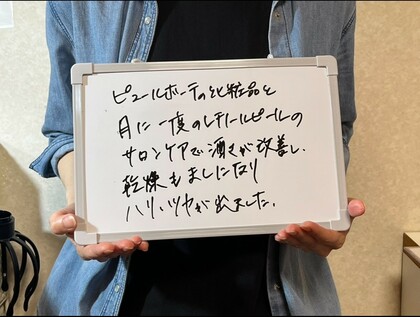 ピュールボーテの化粧品と
月に一度のレチノールピールの
サロンケアで酒さが改善し、
乾燥もましになり
ハリ、ツヤが出ました。